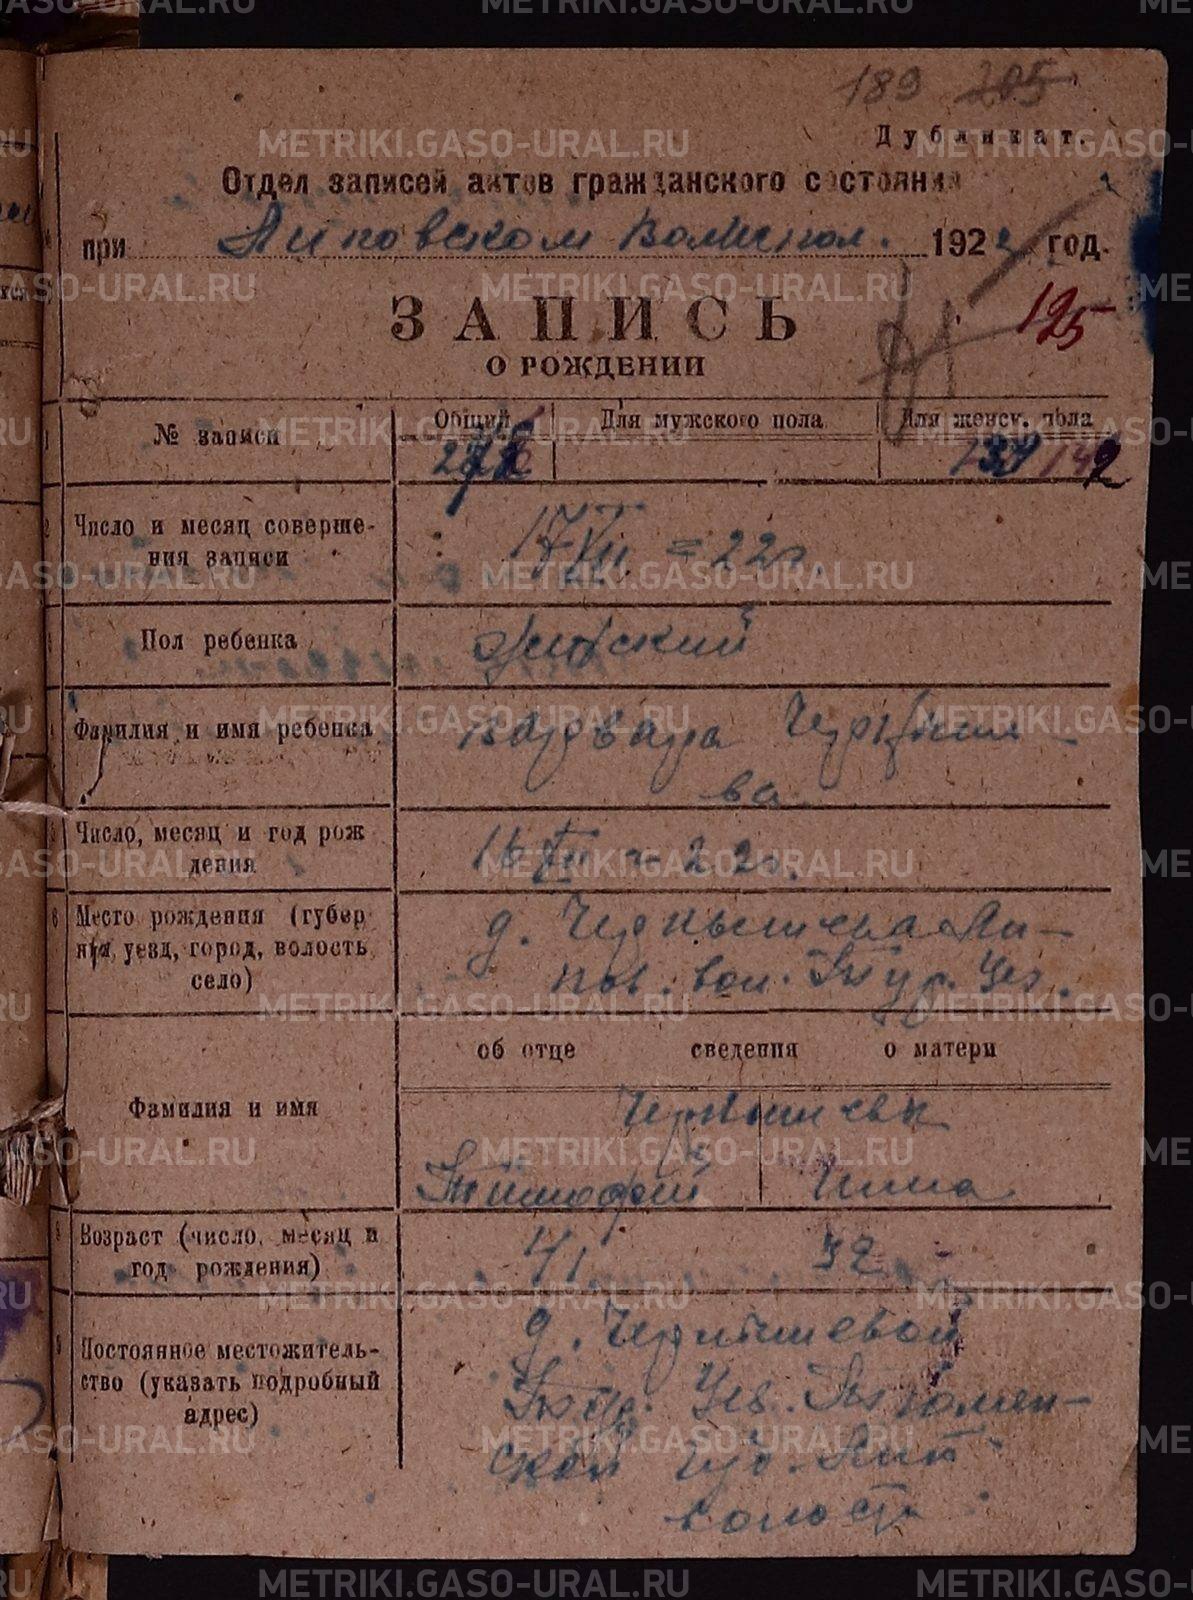 189 205
Дубликат.
Отдел записей актов гражданского состояния
при Липовском Волиспол. 1922 год.
ЗАПИСЬ
125
О РОЖДЕНИИ
№ записи
Общий
Для мужского пола
Для женск. пола
142
Число и месяц соверше-
ния записи
17 VII = 22 г.
Пол ребенка
Женский
Фамилия и имя ребенка
Варвара Черныше-
ва
Число, месяц и год рож
дения
16 VII - 22 г.
6 Место рождения (губер
ния, уезд, город, волость
село)
д. Чернышева Ли-
пов. вол. Тур. Уез.
об отце сведения о матери
Фамилия и имя
Чернышевы
Тимофей
Возраст (число, месяц и
год рождения)
41 32
Постоянное местожитель-
ство (указать подробный
адрес)
д. Чернышевой
Тур. Уез. Тюмен-
ской губ. Лип
волости
METRIKI.GASO-URAL.RU